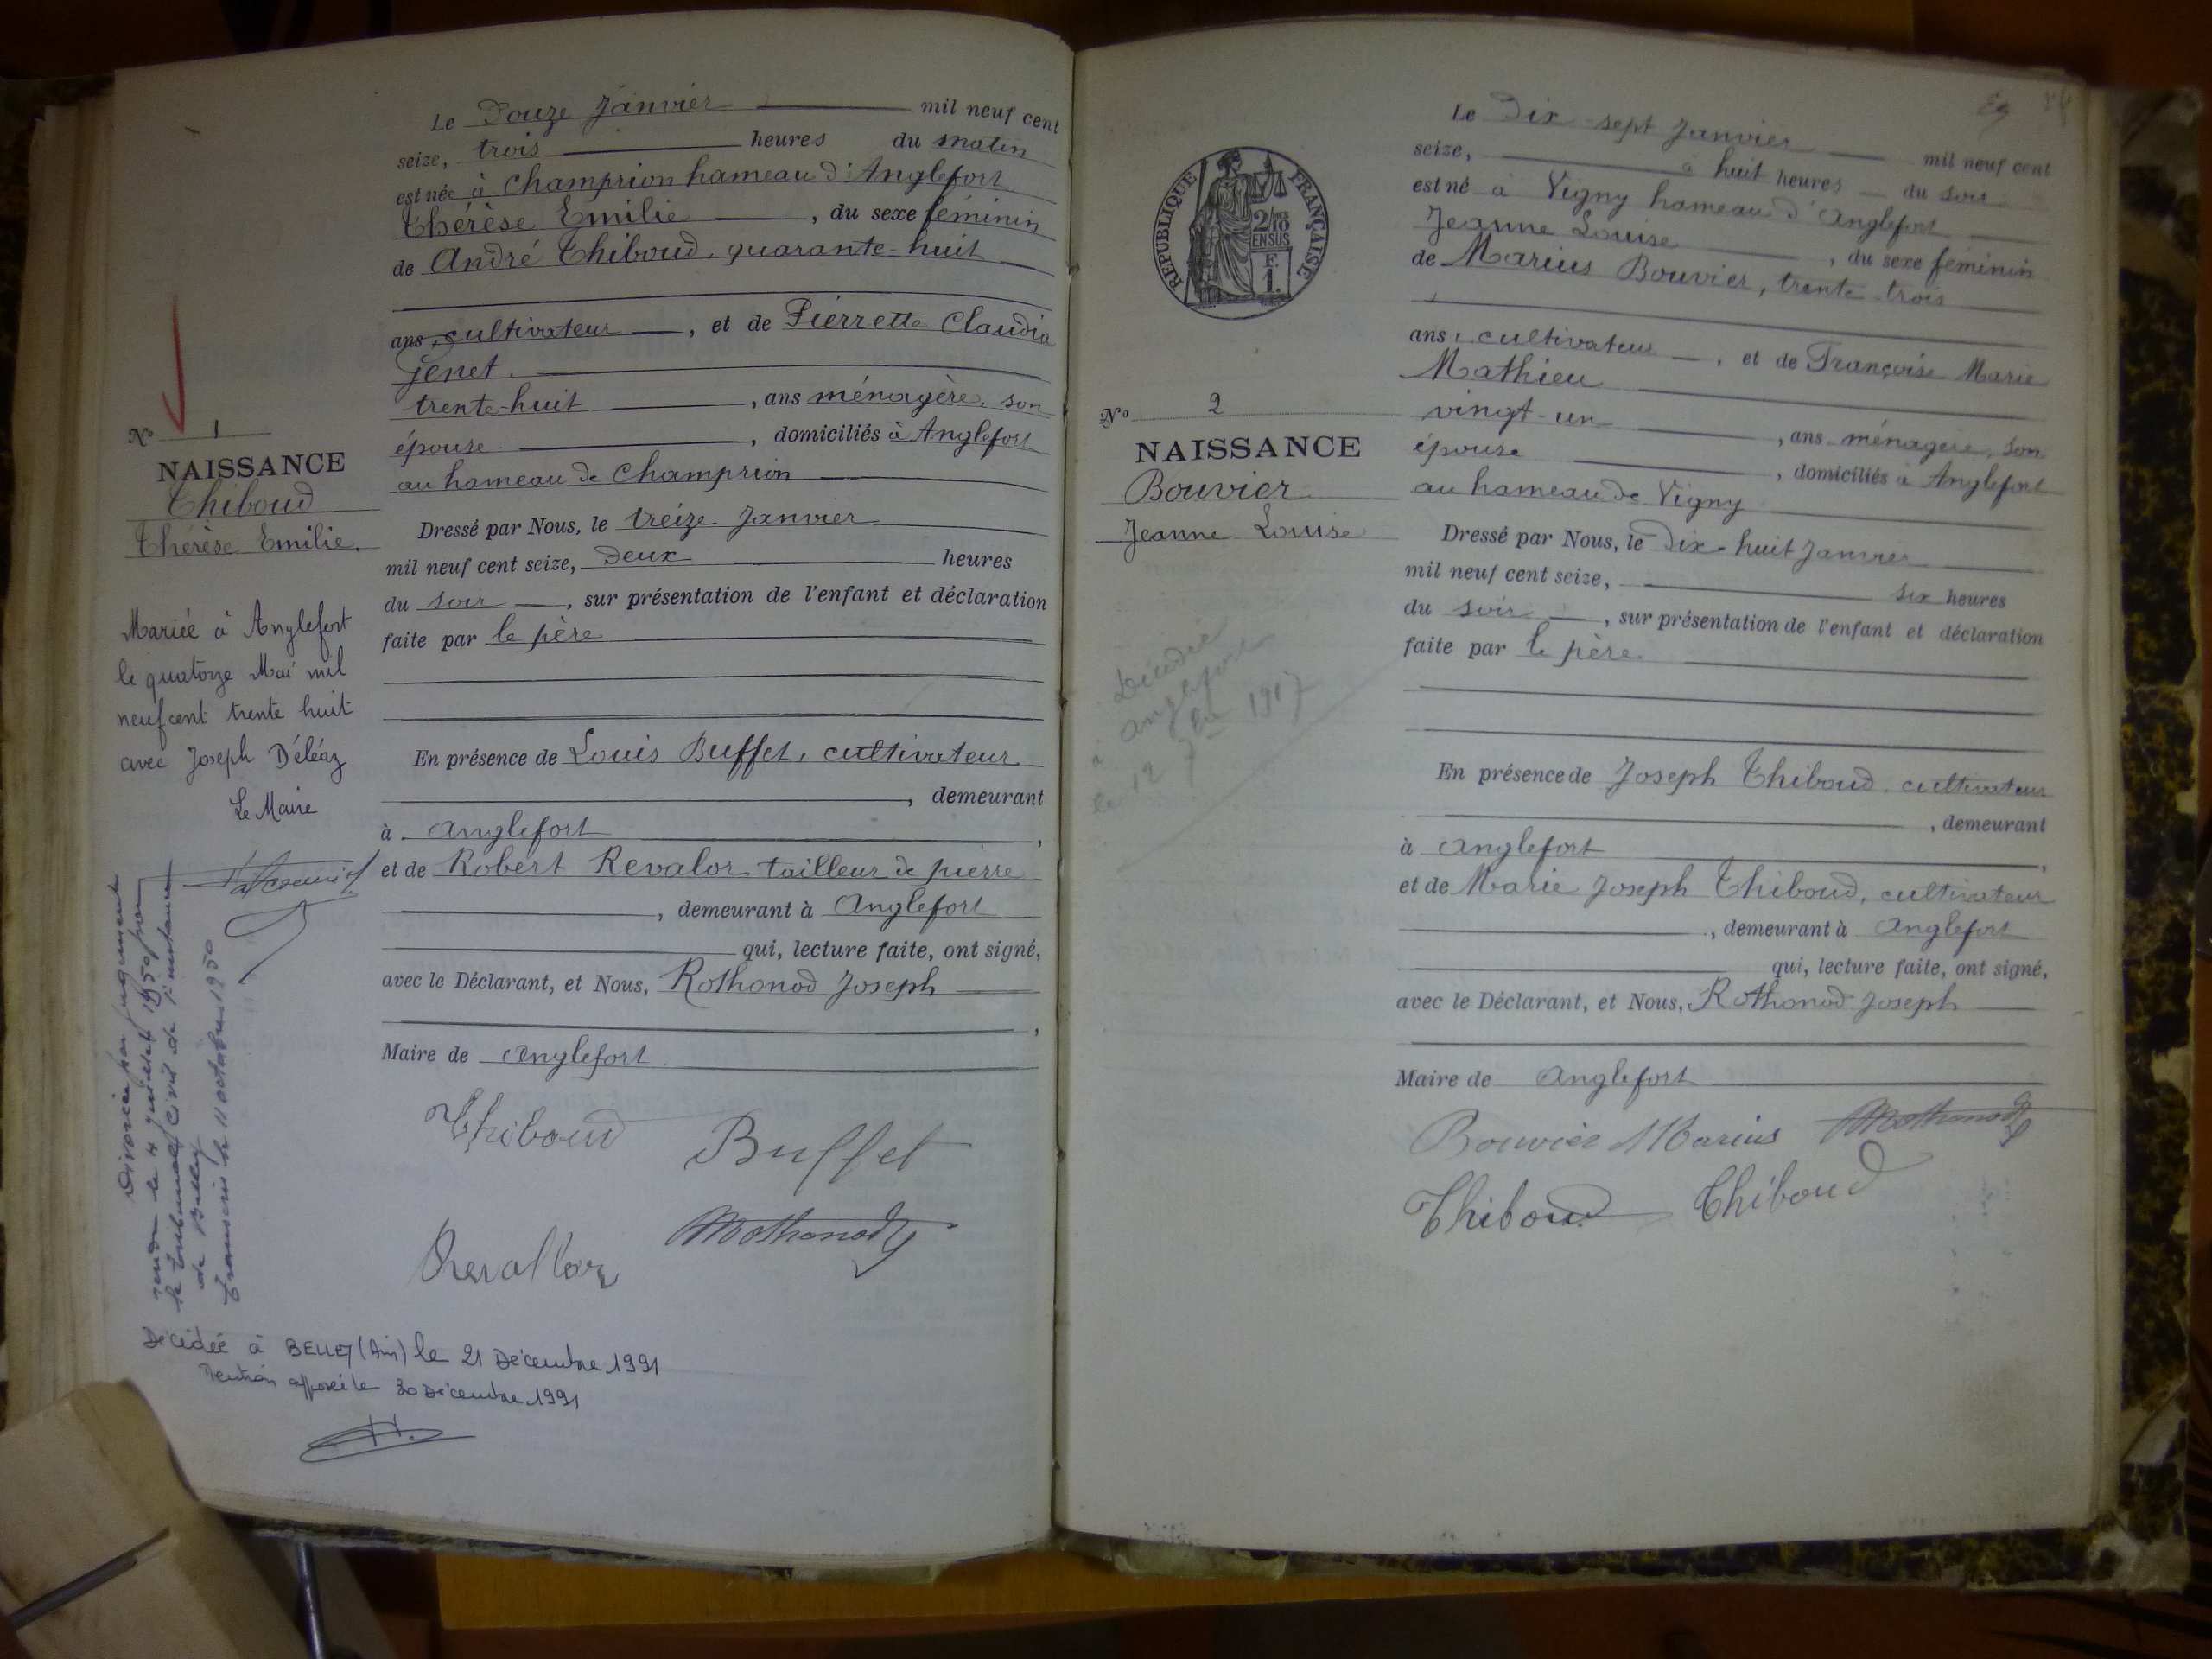 Le Douze Janvier mil neuf cent
seize, trois heures du matin
est née à Champrion hameau d'Anglefort
Thérèse Emilie, du sexe féminin
de André Thiboud, quarante-huit
ans, cultivateur, et de Pierrette Claudia
Genet.
trente-huit, ans ménagère, son
épouse, domiciliés à Anglefort
au hameau de Champrion
Dressé par Nous, le treize Janvier
mil neuf cent seize, Deux heures
du soir, sur présentation de l'enfant et déclaration
faite par le père
En présence de Louis Buffet, cultivateur
, demeurant
à Anglefort,
et de Robert Revalor tailleur de pierre
, demeurant à Anglefort
qui, lecture faite, ont signé,
avec le Déclarant, et Nous, Rothonod Joseph
,
Maire de Anglefort
Thiboud Buffet
Revallor Rothonod
N° 1
NAISSANCE
Thiboud
Thérèse Emilie.
Mariée à Anglefort
le quatorze Mai mil
neuf cent trente huit
avec Joseph Déléaz
Le Maire
Divorcée par jugement
rendu le 4 juillet 1950 par
le tribunal civil de 1e instance
de Belley
Transcris le 11 octobre 1950
Décédée à BELLEY (Ain) le 21 Décembre 1991
Mention apposée le 30 Décembre 1991
N° 2
NAISSANCE
Bouvier
Jeanne Louise
Décédée
à Anglefort
le 12 7bre 1917
REPUBLIQUE FRANÇAISE
2/10 EN SUS
F. 1.
Le Dix-sept Janvier mil neuf cent
seize, à huit heures du soir
est né à Vigny hameau d'Anglefort
Jeanne Louise, du sexe féminin
de Marius Bouvier, trente-trois
ans, cultivateur, et de Françoise Marie
Mathieu
vingt-un, ans ménagère, son
épouse, domiciliés à Anglefort
au hameau de Vigny
Dressé par Nous, le Dix-huit Janvier
mil neuf cent seize, six heures
du soir, sur présentation de l'enfant et déclaration
faite par le père
En présence de Joseph Thiboud, cultivateur
, demeurant
à Anglefort,
et de Marie Joseph Thiboud, cultivateur
, demeurant à Anglefort
qui, lecture faite, ont signé,
avec le Déclarant, et Nous, Rothonod Joseph
Maire de Anglefort
Bouvier Marius Rothonod
Thiboud Thiboud